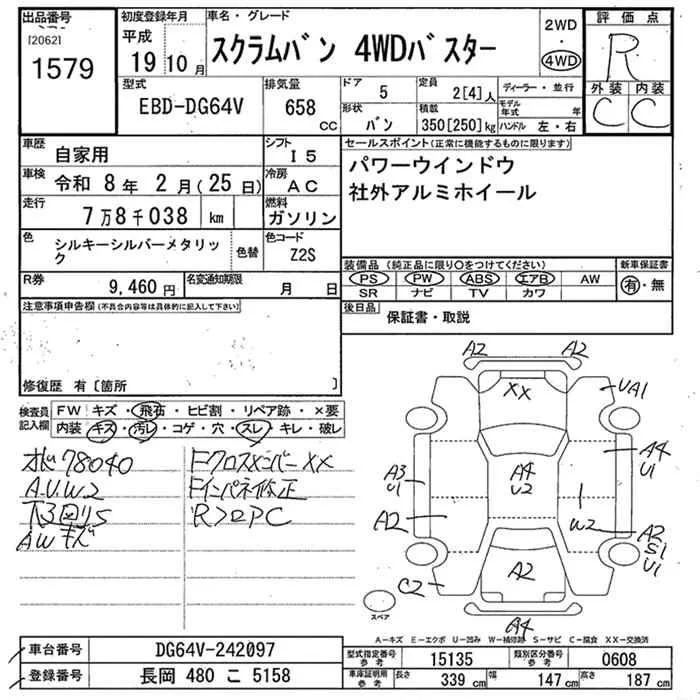 出品番号
[2062]
1579
初度登録年月
平成
19年10月
車名・グレード
スクラムバン 4WDバスター
2WD
・
4WD
評価点
R
外装 内装
C C
型式
EBD-DG64V
排気量
658 CC
ドア
5
形状
バン
定員
2[4]人
積載
350[250]kg
ディーラー・並行
モデル年式 年
ハンドル 左・右
車歴
自家用
シフト
I5
車検
令和 8年 2月(25日)
冷房
AC
走行
7万8千038 km
燃料
ガソリン
色
シルキーシルバーメタリック
色替
色コード
Z2S
R券
9,460円
名変通知期限
月 日
セールスポイント(正常に機能するものに限ります)
パワーウインドウ
社外アルミホイール
装備品(純正品に限り○をつけてください)
新車保証書
PS PW ABS エアB AW
SR ナビ TV カワ
有・無
後日品
保証書・取説
注意事項申告欄(不具合内容等は具体的に記入して下さい)
修復歴 有〔箇所 〕
検査員記入欄
FW キズ・飛石・ヒビ割・リペア跡・×要
内装 キズ・汚レ・コゲ・穴・スレ・キレ・破レ
78040
A.U.W2
下3回りS
AWキズ
FクロスメンバーXX
Fインパネ修正
RフロアC
A2 A2
XX
UA1
A4
U1
A3
U1
A4
U2
A2
W2
A2
S1
U1
C2
A2
A4
スペア
A―キズ E―エクボ U―凹み W―補修跡 S―サビ C―腐食 XX―交換済
車台番号
DG64V-242097
登録番号
長岡 480 こ 5158
型式指定番号
参考
15135
類別区分番号
参考
0608
車庫証明用
参考
長さ
339 cm
幅
147 cm
高さ
187 cm